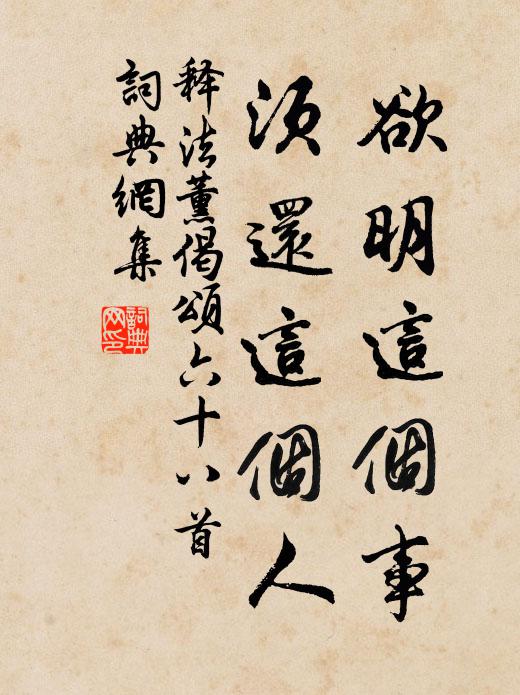 欲明這個事
須還這個人
释法薰偈頌六十八首
詞典網集
詞典網印